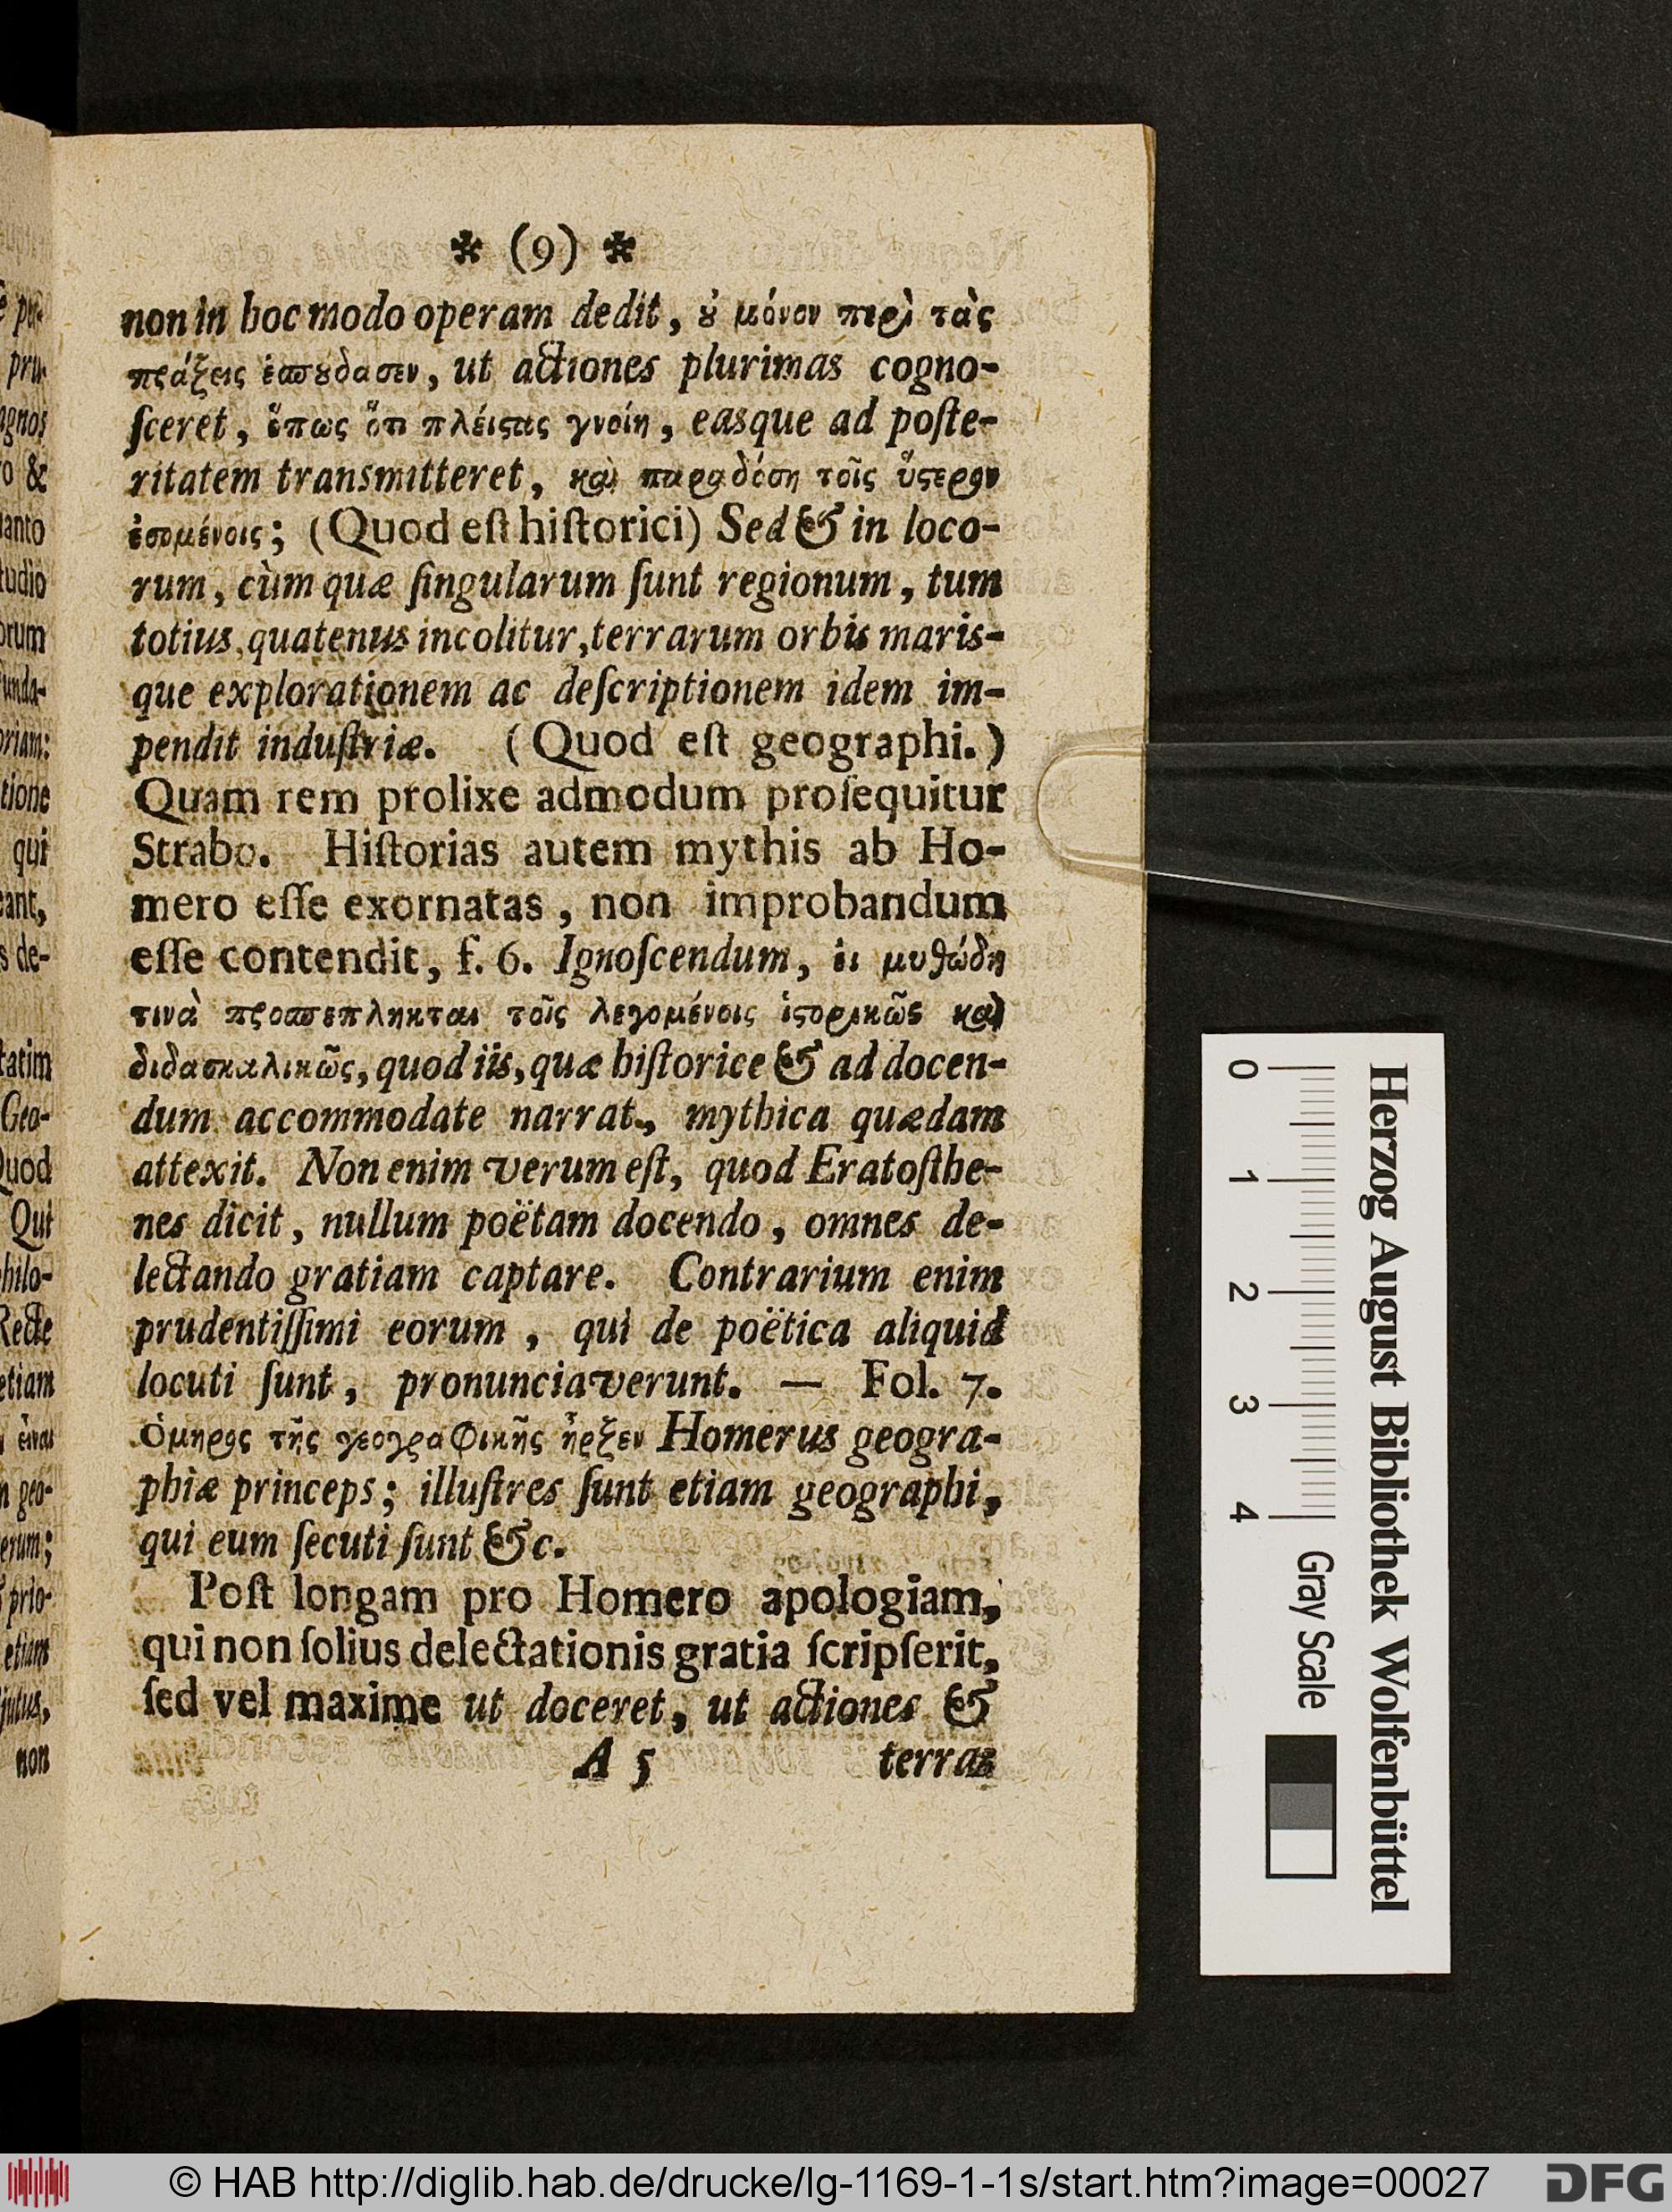 * (9) *
non in hoc modo operam dedit, ȣ μόνον περὶ τὰς
πράξεις ἐσπȣδασεν, ut actiones plurimas cogno-
ſceret, ὅπως ὅτι πλέιςας γνοίη, easque ad poſte-
ritatem transmitteret, καὶ παραδόση τοῖς ὕςερον
ἐσομένοις; (Quod eſt hiſtorici) Sed & in loco-
rum, cùm quæ ſingularum ſunt regionum, tum
totius, quatenus incolitur, terrarum orbis maris-
que explorationem ac deſcriptionem idem im-
pendit induſtriæ. (Quod eſt geographi.)
Quam rem prolixe admodum proſequitur
Strabo. Hiſtorias autem mythis ab Ho-
mero eſſe exornatas, non improbandum
eſſe contendit, f. 6. Ignoſcendum, ἐι μυθώδη
τινὰ προσπεπληκται τοῖς λεγομένοις ἱςορικῶς καὶ
διδασκαλικῶς, quod iis, quæ hiſtorice & ad docen-
dum accommodate narrat, mythica quædam
attexit. Non enim verum eſt, quod Eratoſthe-
nes dicit, nullum poëtam docendo, omnes de-
lectando gratiam captare. Contrarium enim
prudentiſſimi eorum, qui de poëtica aliquid
locuti ſunt, pronunciaverunt. — Fol. 7.
Ὁμηρος τῆς γεογραφικῆς ἦρξεν Homerus geogra-
phiæ princeps; illuſtres ſunt etiam geographi,
qui eum ſecuti ſunt &c.
Poſt longam pro Homero apologiam,
qui non ſolius delectationis gratia ſcripſerit,
ſed vel maxime ut doceret, ut actiones &
A 5 terras
Herzog August Bibliothek Wolfenbüttel
0 1 2 3 4 Gray Scale
© HAB http://diglib.hab.de/drucke/lg-1169-1-1s/start.htm?image=00027
DFG